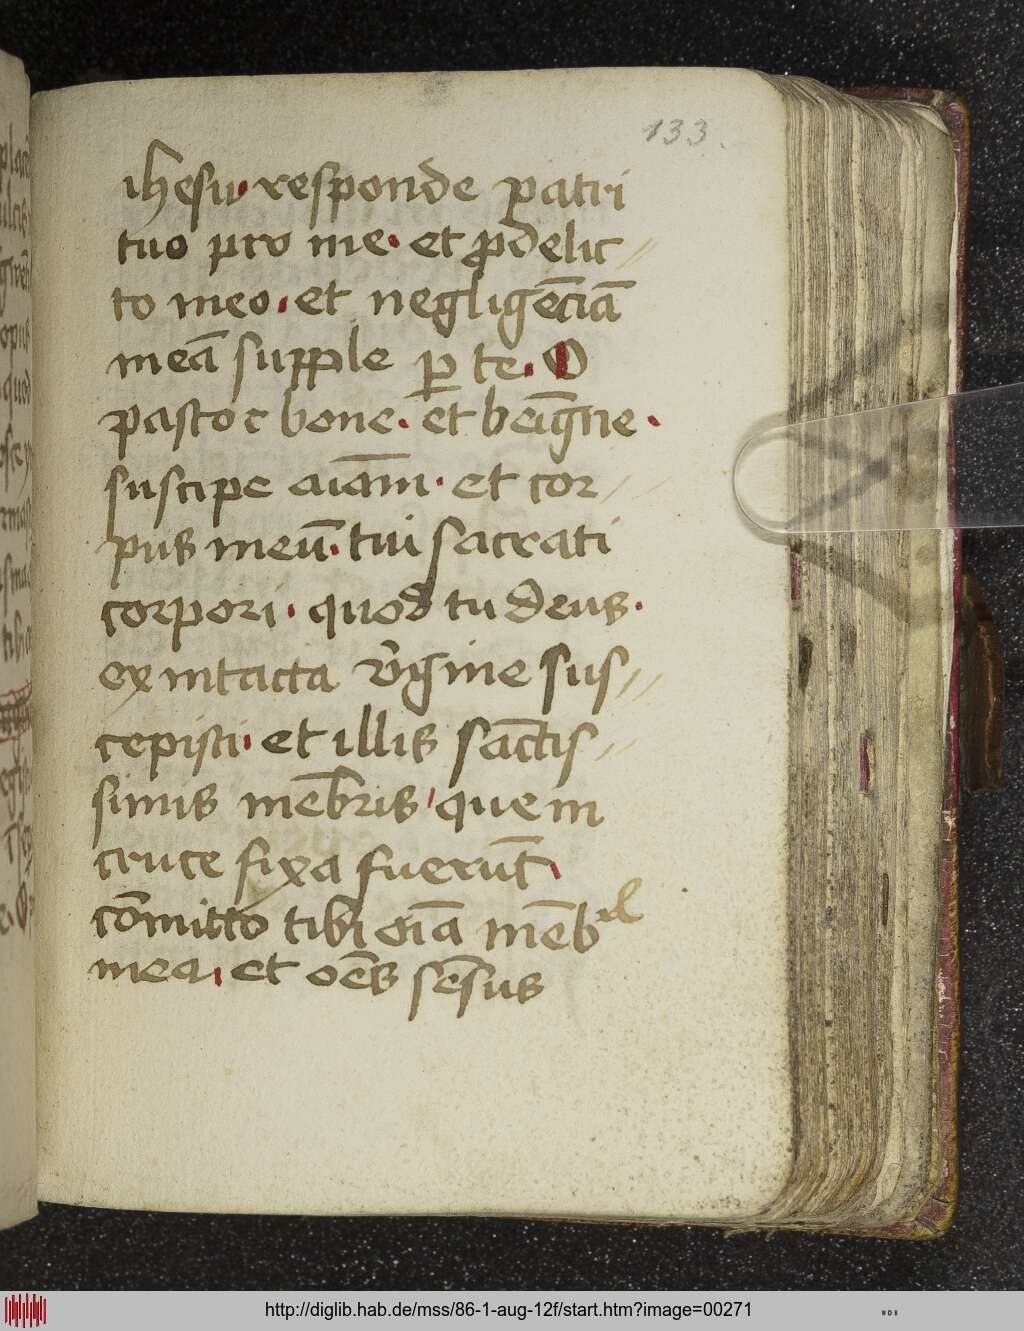 133.
ihesu· responde patri
tuo pro me· et ꝓ delic//
to meo· et negligēciā
meā supple ꝑ te· O
pastor bone· et beīgne·
suscipe aīam· et cor//
pus meū· tui sacrati
corpori· quod tu deus·
ex intacta v̓gine sus//
cepisti· et illis sāctis//
simis mēbris quem
cruce fixa fuerūt·
cōmitto tibi oīa mēb
mea· et oēs sēsus
http://diglib.hab.de/mss/86-1-aug-12f/start.htm?image=00271